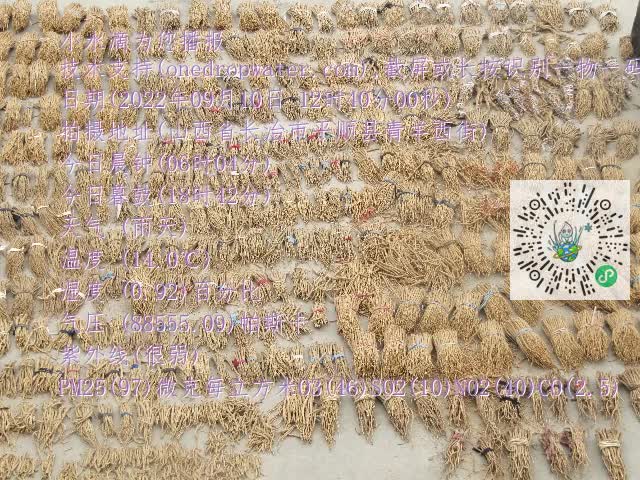 小水滴为您播报
技术支持(onedropwater.com) 截屏或长按识别一物一码
日期(2022年09月10日 12时10分00秒)
拍摄地址(山西省长治市平顺县青羊西街)
今日晨钟(06时04分)
今日暮鼓(18时42分)
天气 (雨天)
温度 (14.0℃)
湿度 (0.92)百分比
气压 (88555.09)帕斯卡
紫外线(很弱)
PM25(97)微克每立方米O3(46)SO2(10)NO2(40)CO(2.5)